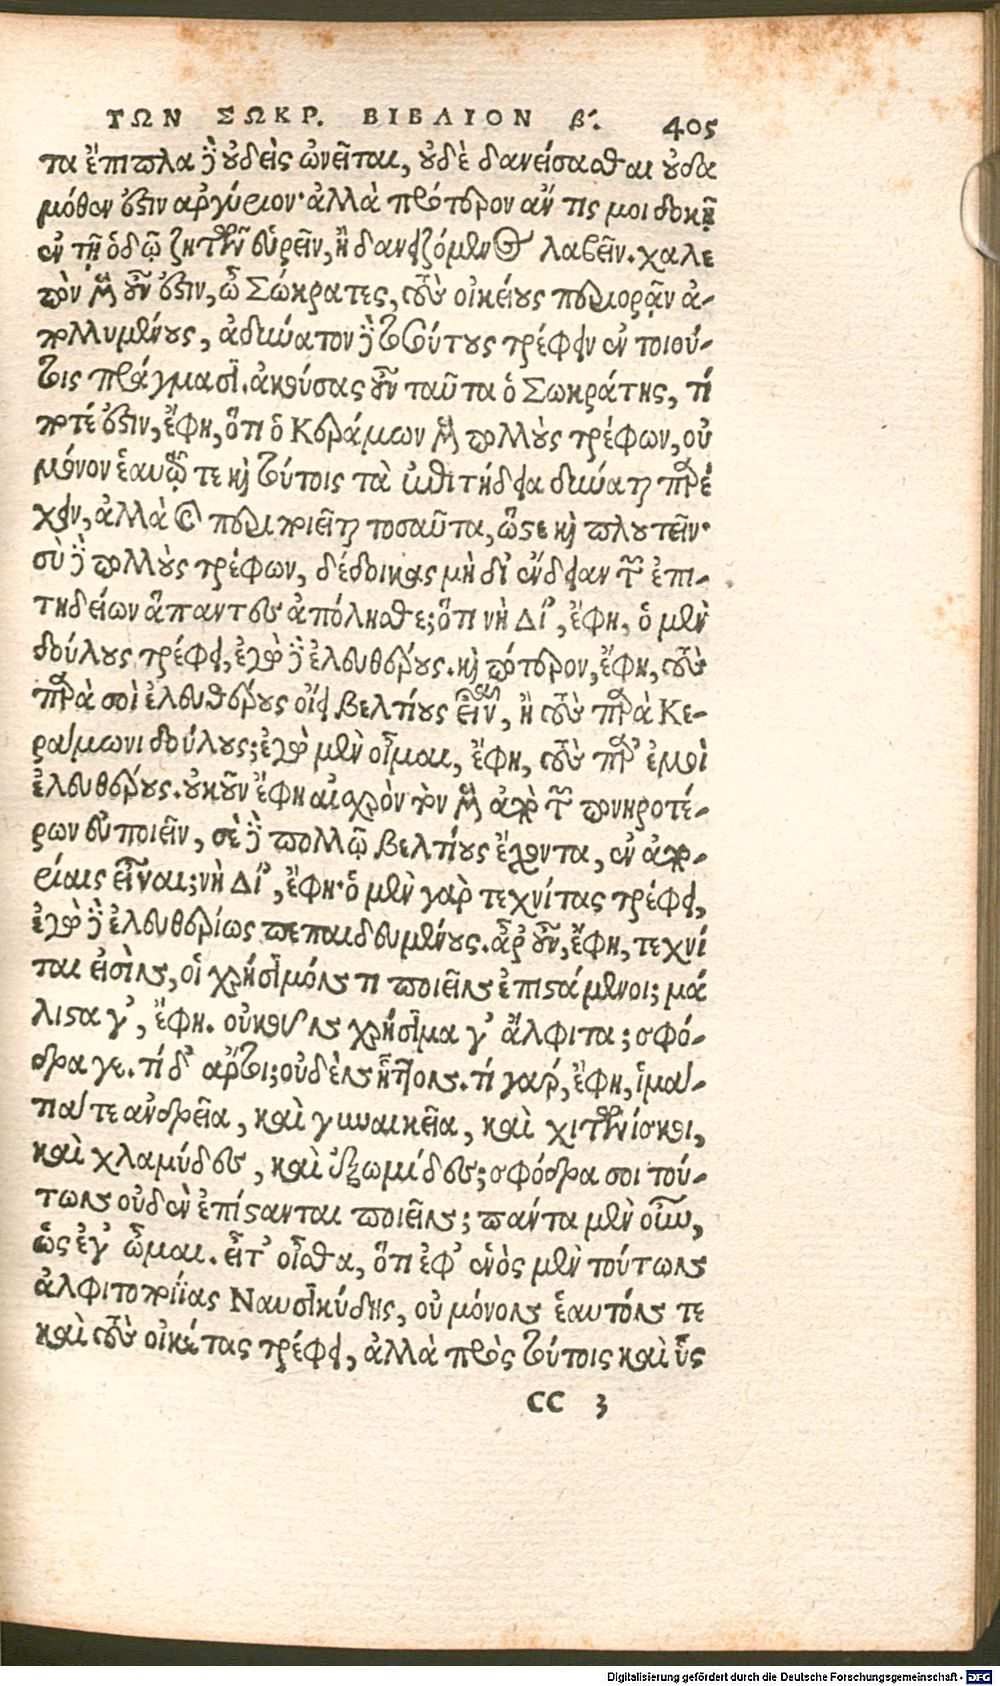 ΤΩΝ ΣΩΚΡ. ΒΙΒΛΙΟΝ β'. 405
τα ἔπιπλα δὲ οὐδεὶς ὠνεῖται, οὐδὲ δανείσασθαι οὐδα
μόθεν ἔστιν αργύριον· ἀλλὰ πρότερον ἄν τις μοι δοκῇ
ἐν τῇ ὁδῷ ζητῶν εὑρεῖν, ἢ δανειζόμενος λαβεῖν. χαλε
πὸν μὲν οὖν ἔστιν, ὦ Σώκρατες, τοὺς οἰκείους περιορᾷν ἀ-
πολλυμένους, ἀδύνατον δὲ τοσούτους τρέφειν ἐν τοιού-
τοις πράγμασι. ἀκούσας οὖν ταῦτα ὁ Σωκράτης, τί
ποτέ ἔστιν, ἔφη, ὅτι ὁ Κεράμων μὲν πολλοὺς τρέφων, οὐ
μόνον ἑαυτῷ τε καὶ τούτοις τὰ ἐπιτήδεια δύναται παρέ
χειν, ἀλλὰ καὶ περιποιεῖται τοσαῦτα, ὥστε καὶ πλουτεῖν·
σὺ δὲ πολλοὺς τρέφων, δέδοικας μὴ δι' ἔνδειαν τῶν ἐπι-
τηδείων ἅπαντες ἀπόλησθε; ὅτι νὴ Δί', ἔφη, ὁ μὲν
δούλους τρέφει, ἐγὼ δὲ ἐλευθέρους. καὶ πότερον, ἔφη, τοὺς
παρὰ σοὶ ἐλευθέρους οἴει βελτίους εἶναι, ἢ τοὺς παρὰ Κε-
ράμωνι δούλους; ἐγὼ μὲν οἶμαι, ἔφη, τοὺς παρ' ἐμοὶ
ἐλευθέρους. οὐκοῦν ἔφη αἰσχρὸν τὸν μὲν ἀπὸ τῶν πονηροτέ-
ρων εὐποιεῖν, σὲ δὲ πολλῷ βελτίους ἔχοντα, ἐν ἀπο-
ρίαις εἶναι; νὴ Δί', ἔφη· ὁ μὲν γὰρ τεχνίτας τρέφει,
ἐγὼ δὲ ἐλευθερίως πεπαιδευμένους. ἆρ' οὖν, ἔφη, τεχνί
ται εἰσὶν, οἱ χρήσιμόν τι ποιεῖν ἐπιστάμενοι; μά
λιστα γ', ἔφη. οὐκοῦν χρήσιμα γ' ἄλφιτα; σφό-
δρα γε. τί δ' ἄρτοι; οὐδὲν ἧττον. τί γάρ, ἔφη, ἱμά-
τιά τε ἀνδρεῖα, καὶ γυναικεῖα, καὶ χιτωνίσκοι,
καὶ χλαμύδες, καὶ ἐξωμίδες; σφόδρα σοι τού-
των οὐδὲν ἐπίστανται ποιεῖν; πάντα μὲν οὖν,
ὡς ἐγ' ὦμαι. εἶτ' οἶσθα, ὅτι ἐφ' ἑνὸς μὲν τούτων
ἀλφιτοποιίας Ναυσικύδης, οὐ μόνον ἑαυτόν τε
καὶ τοὺς οἰκέτας τρέφει, ἀλλὰ πρὸς τούτοις καὶ ὗς
CC 3
Digitalisierung gefördert durch die Deutsche Forschungsgemeinschaft - DFG